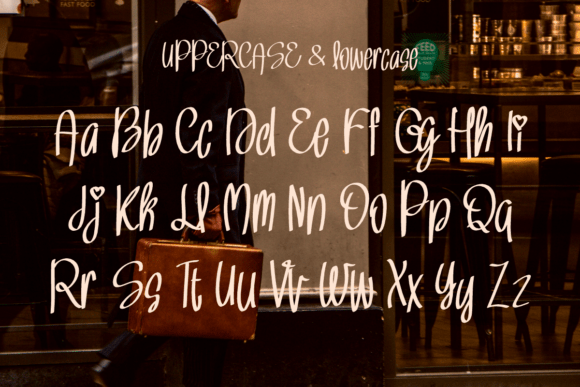 FAST FOOD
UPPERCASE & lowercase
Aa Bb Cc Dd Ee Ff Gg Hh Ii
Jj Kk Ll Mm Nn Oo Pp Qq
Rr Ss Tt Uu Vv Ww Xx Yy Zz